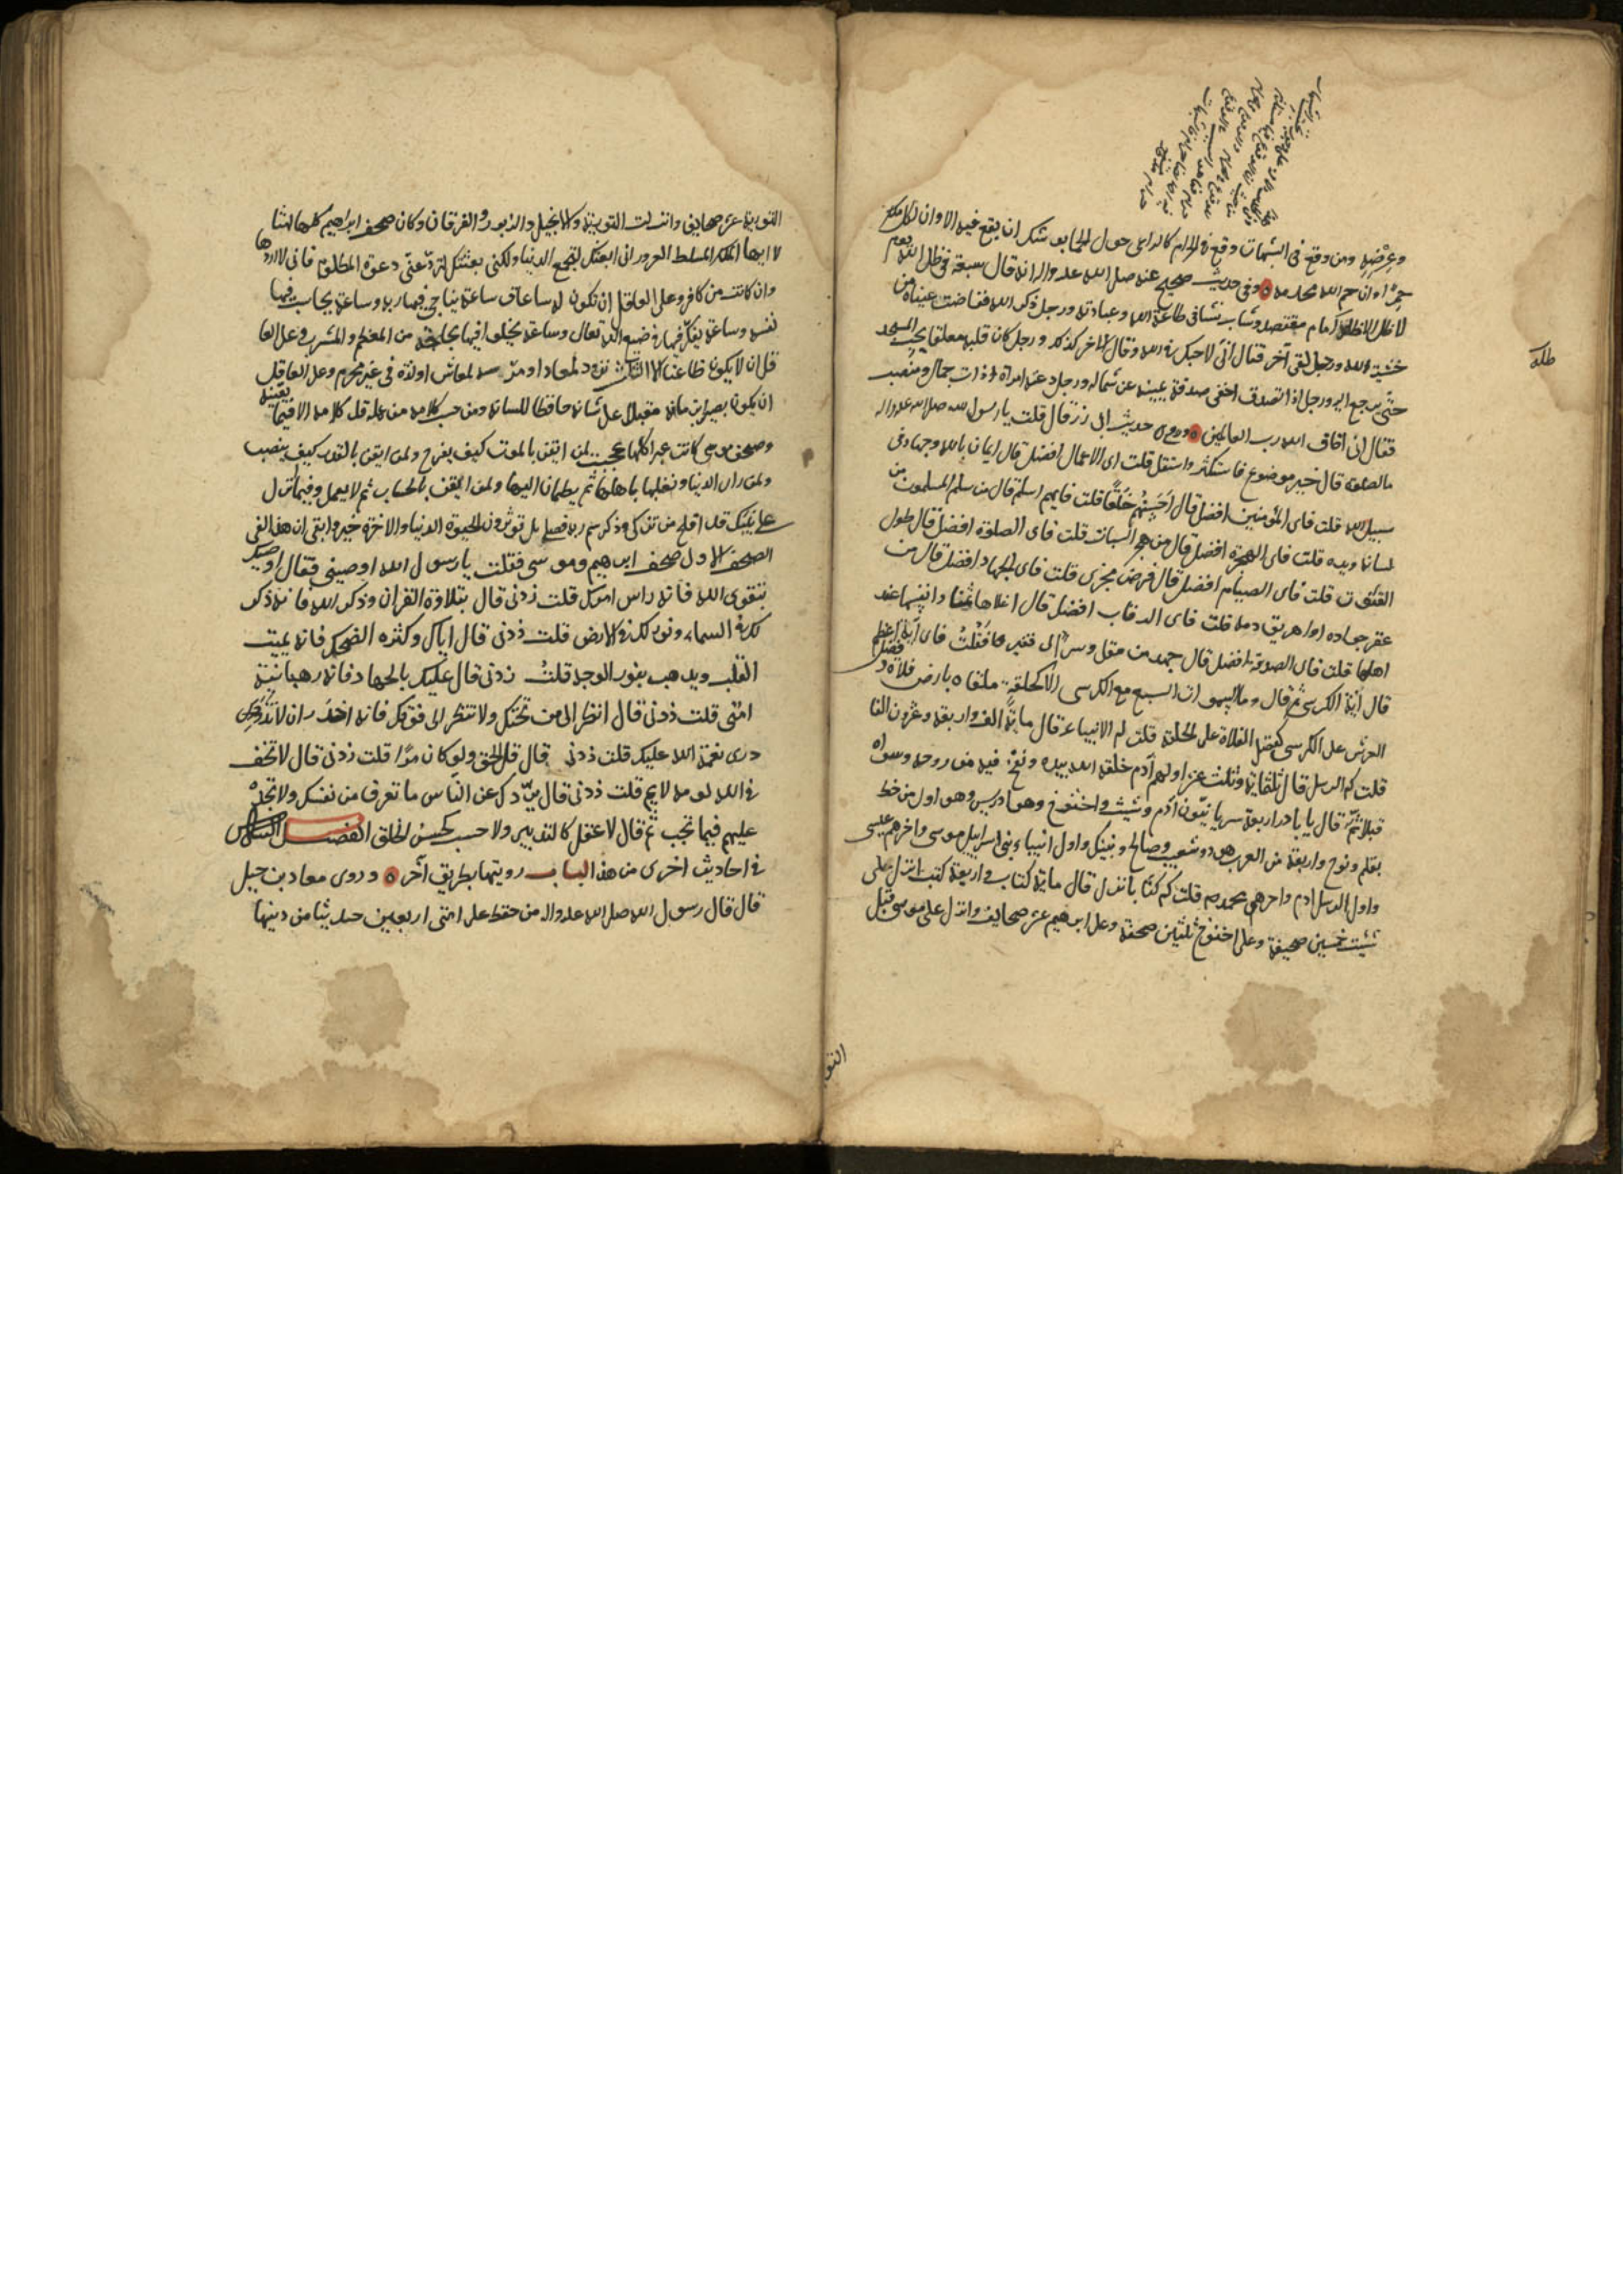 وعرضه ومن وقع في الشبهات وقع في الحرام كالراعي حول الحمى يوشك ان يقع فيه الا وان لكل ملك
حمى الا وان حمى الله محارمه ٥ وفي حديث صحيح عنه صلى الله عليه واله انه قال سبعة في ظل الله يوم
لا ظل الا ظله امام مقتصد وشاب نشا في طاعة الله وعبادته ورجل ذكر الله ففاضت عيناه من
خشية الله ورجل لقى آخر فقال انى لاحبك في الله وقال الاخر كذلك ورجل كان قلبه معلقا بحب المسجد
حتى يرجع اليه ورجل اذا تصدق اخفى صدقة يمينه عن شماله ورجل دعته امراة ذات جمال ومنصب
فقال انى اخاف الله رب العالمين ٥ وروى حديث ابى ذر قال قلت يا رسول الله صلى الله عليه واله
ما الصلوة قال خير موضوع فاستكثر واستقل قلت اى الاعمال افضل قال ايمان بالله وجهاد في
سبيل الله قلت فاى المؤمنين افضل قال احسنهم خلقا قلت فايهم اسلم قال من سلم المسلمون من
لسانه ويده قلت فاى الهجرة افضل قال من هجر السيات قلت فاى الصلوة افضل قال طول
القنوت قلت فاى الصيام افضل قال فرض مجزى قلت فاى الجهاد افضل قال من
عقر جواده واهريق دمه قلت فاى الرقاب افضل قال اغلاها ثمنا وانفسها عند
اهلها قلت فاى الصدقة افضل قال جهد من مقل وسر الى فقير فقلت فاى آية اعظم
قال آية الكرسى ثم قال وما السموات السبع مع الكرسى الا كحلقة ملقاة بارض فلاة وفضل
العرش على الكرسى كفضل الفلاة على الحلقة قلت كم الانبياء قال ماية الف واربعة وعشرون الفا
قلت كم الرسل قال ثلثماية وثلث عشر اولهم آدم خلقه الله بيده ونفخ فيه من روحه وسواه
قبلا ثم قال يا باذر اربعة سريانيون آدم وشيث واخنوخ وهو ادريس وهو اول من خط
بقلم ونوح واربعة من العرب هود وشعيب وصالح ونبيك واول انبياء بنى اسرايل موسى واخرهم عيسى
واول الرسل ادم واخرهم محمد صم قلت كم كتابا نزل قال ماية كتاب واربعة كتب انزل على
شيث خمسين صحيفة وعلى اخنوخ ثلثين صحيفة وعلى ابرهيم عشر صحايف وانزل على موسى قبل
التو
التورية عشر صحايف وانزلت التورية والانجيل والزبور والفرقان وكان صحف ابراهيم كلها امثالا
ايها الملك المسلط المغرور انى ابعثك لتجمع الدنيا ولكنى بعثتك لترد عنى دعوة المظلوم فانى لا اردها
وان كانت من كافر وعلى العاقل ان تكون له ساعات ساعة يناجى فيها ربه وساعة يحاسب فيها
نفسه وساعة يفكر فيها في صنع الله تعالى وساعة يخلو فيها بحاجته من المطعم والمشرب وعلى العا
قل ان لا يكون ظاعنا الا لثلث تزود لمعاد او مرمة لمعاش او لذة في غير محرم وعلى العاقل
ان يكون بصيرا بزمانه مقبلا على شانه حافظا للسانه ومن حسب كلامه من عمله قل كلامه الا فيما يعنيه
وصحف موسى كانت عبرا كلها عجبت لمن ايقن بالموت كيف يفرح ولمن ايقن بالقدر كيف ينصب
ولمن راى الدنيا وتقلبها باهلها ثم يطمان اليها ولمن ايقن بالحساب ثم لا يعمل وفيما نزل
على نبيك قد افلح من تزكى وذكر اسم ربه فصلى بل تؤثرون الحيوة الدنيا والاخرة خير وابقى ان هذا لفى
الصحف الاولى صحف ابرهيم وموسى فقلت يا رسول الله اوصينى فقال اوصيك
بتقوى الله فانه راس امرك قلت زدنى قال بتلاوة القران وذكر الله فانه ذكر
لك في السماء ونور لك في الارض قلت زدنى قال اياك وكثره الضحك فانه يميت
القلب ويذهب بنور الوجه قلت زدنى قال عليك بالجهاد فانه رهبانية
امتى قلت زدنى قال انظر الى من تحتك ولا تنظر الى فوقك فانه اجدر ان لا تزدرى
نعمة الله عليك قلت زدنى قال قل الحق ولو كان مرا قلت زدنى قال لا تخف
في الله لومه لايم قلت زدنى قال يردك عن الناس ما تعرف من نفسك ولا تجد
عليهم فيما تحب ثم قال لا عقل كالتدبير ولا حسب كحسن الخلق الفصل السادس
في احاديث اخرى من هذا الباب رويتها بطريق آخر ٥ وروى معاد بن جبل
قال قال رسول الله صلى الله عليه واله من حفظ على امتى اربعين حديثا من دينها